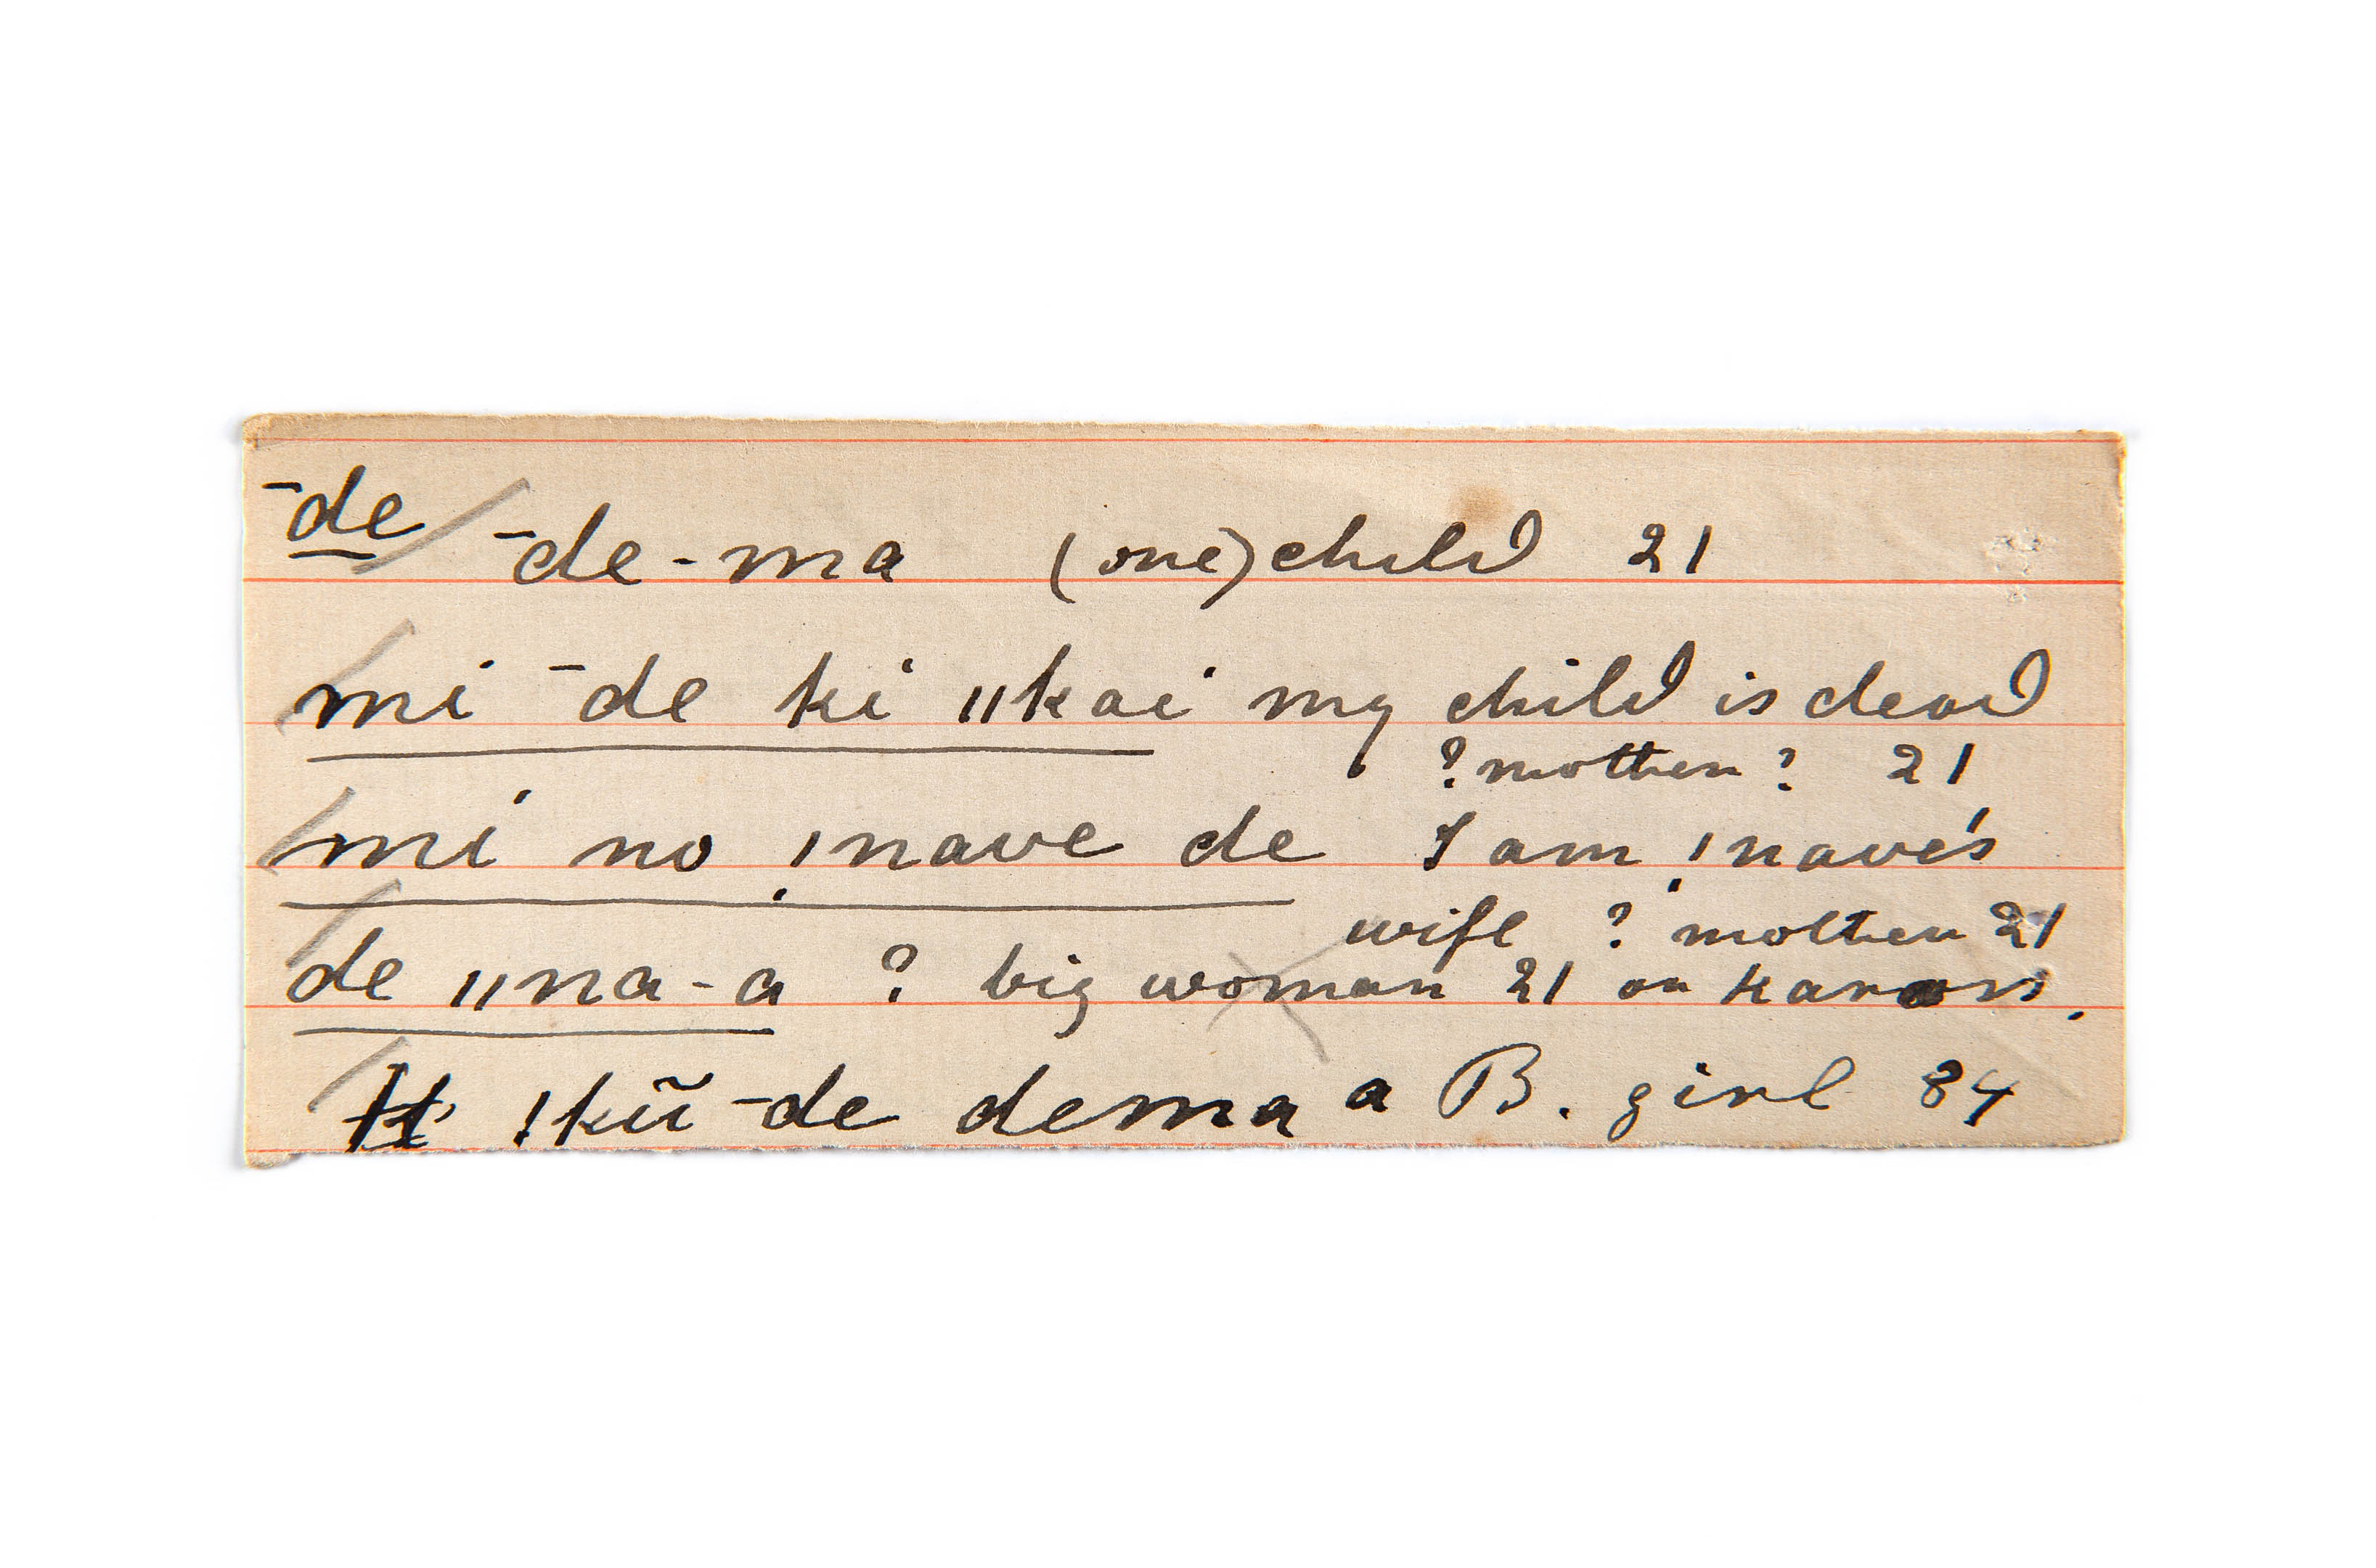 ¯de ¯de-ma (one) child 21
mi ¯de ki ǁkai my child is dead
? mother ? 21
mi no ǃnave de I am ǃnave's
wife ? mother 21
de ǁna-a ? big woman 21 or kaross.
ǃkũ ¯de dema a B. girl 84